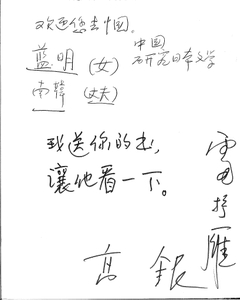 欢迎您去中国。
蓝明(女)
中国
研究日本文学
南韓(丈夫)
我送你的书,
讓他看一下。
高 銀